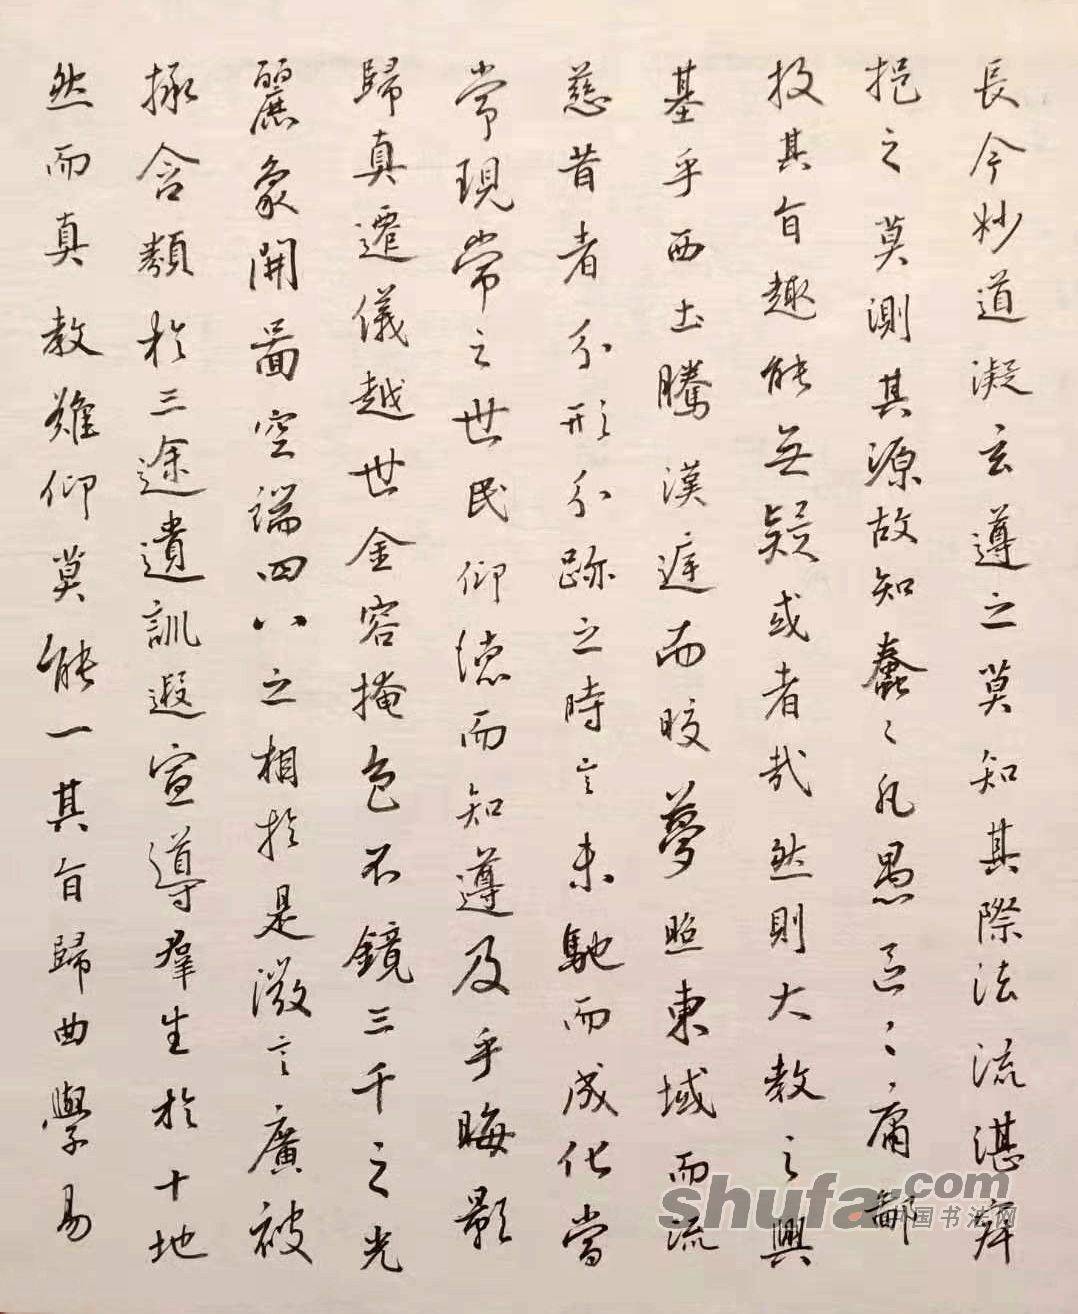 長今妙道凝玄遵之莫知其際法流湛寂
挹之莫測其源故知蠢〻凡愚區〻庸鄙
投其旨趣能無疑或者哉然則大教之興
基乎西土騰漢庭而皎夢照東域而流
慈昔者分形分跡之時言未馳而成化當
常現常之世民仰德而知遵及乎晦影
歸真遷儀越世金容掩色不鏡三千之光
麗象開圖空端四八之相於是微言廣被
拯含類於三途遺訓遐宣導羣生於十地
然而真教難仰莫能一其旨歸曲學易
shufa.com
中国书法网